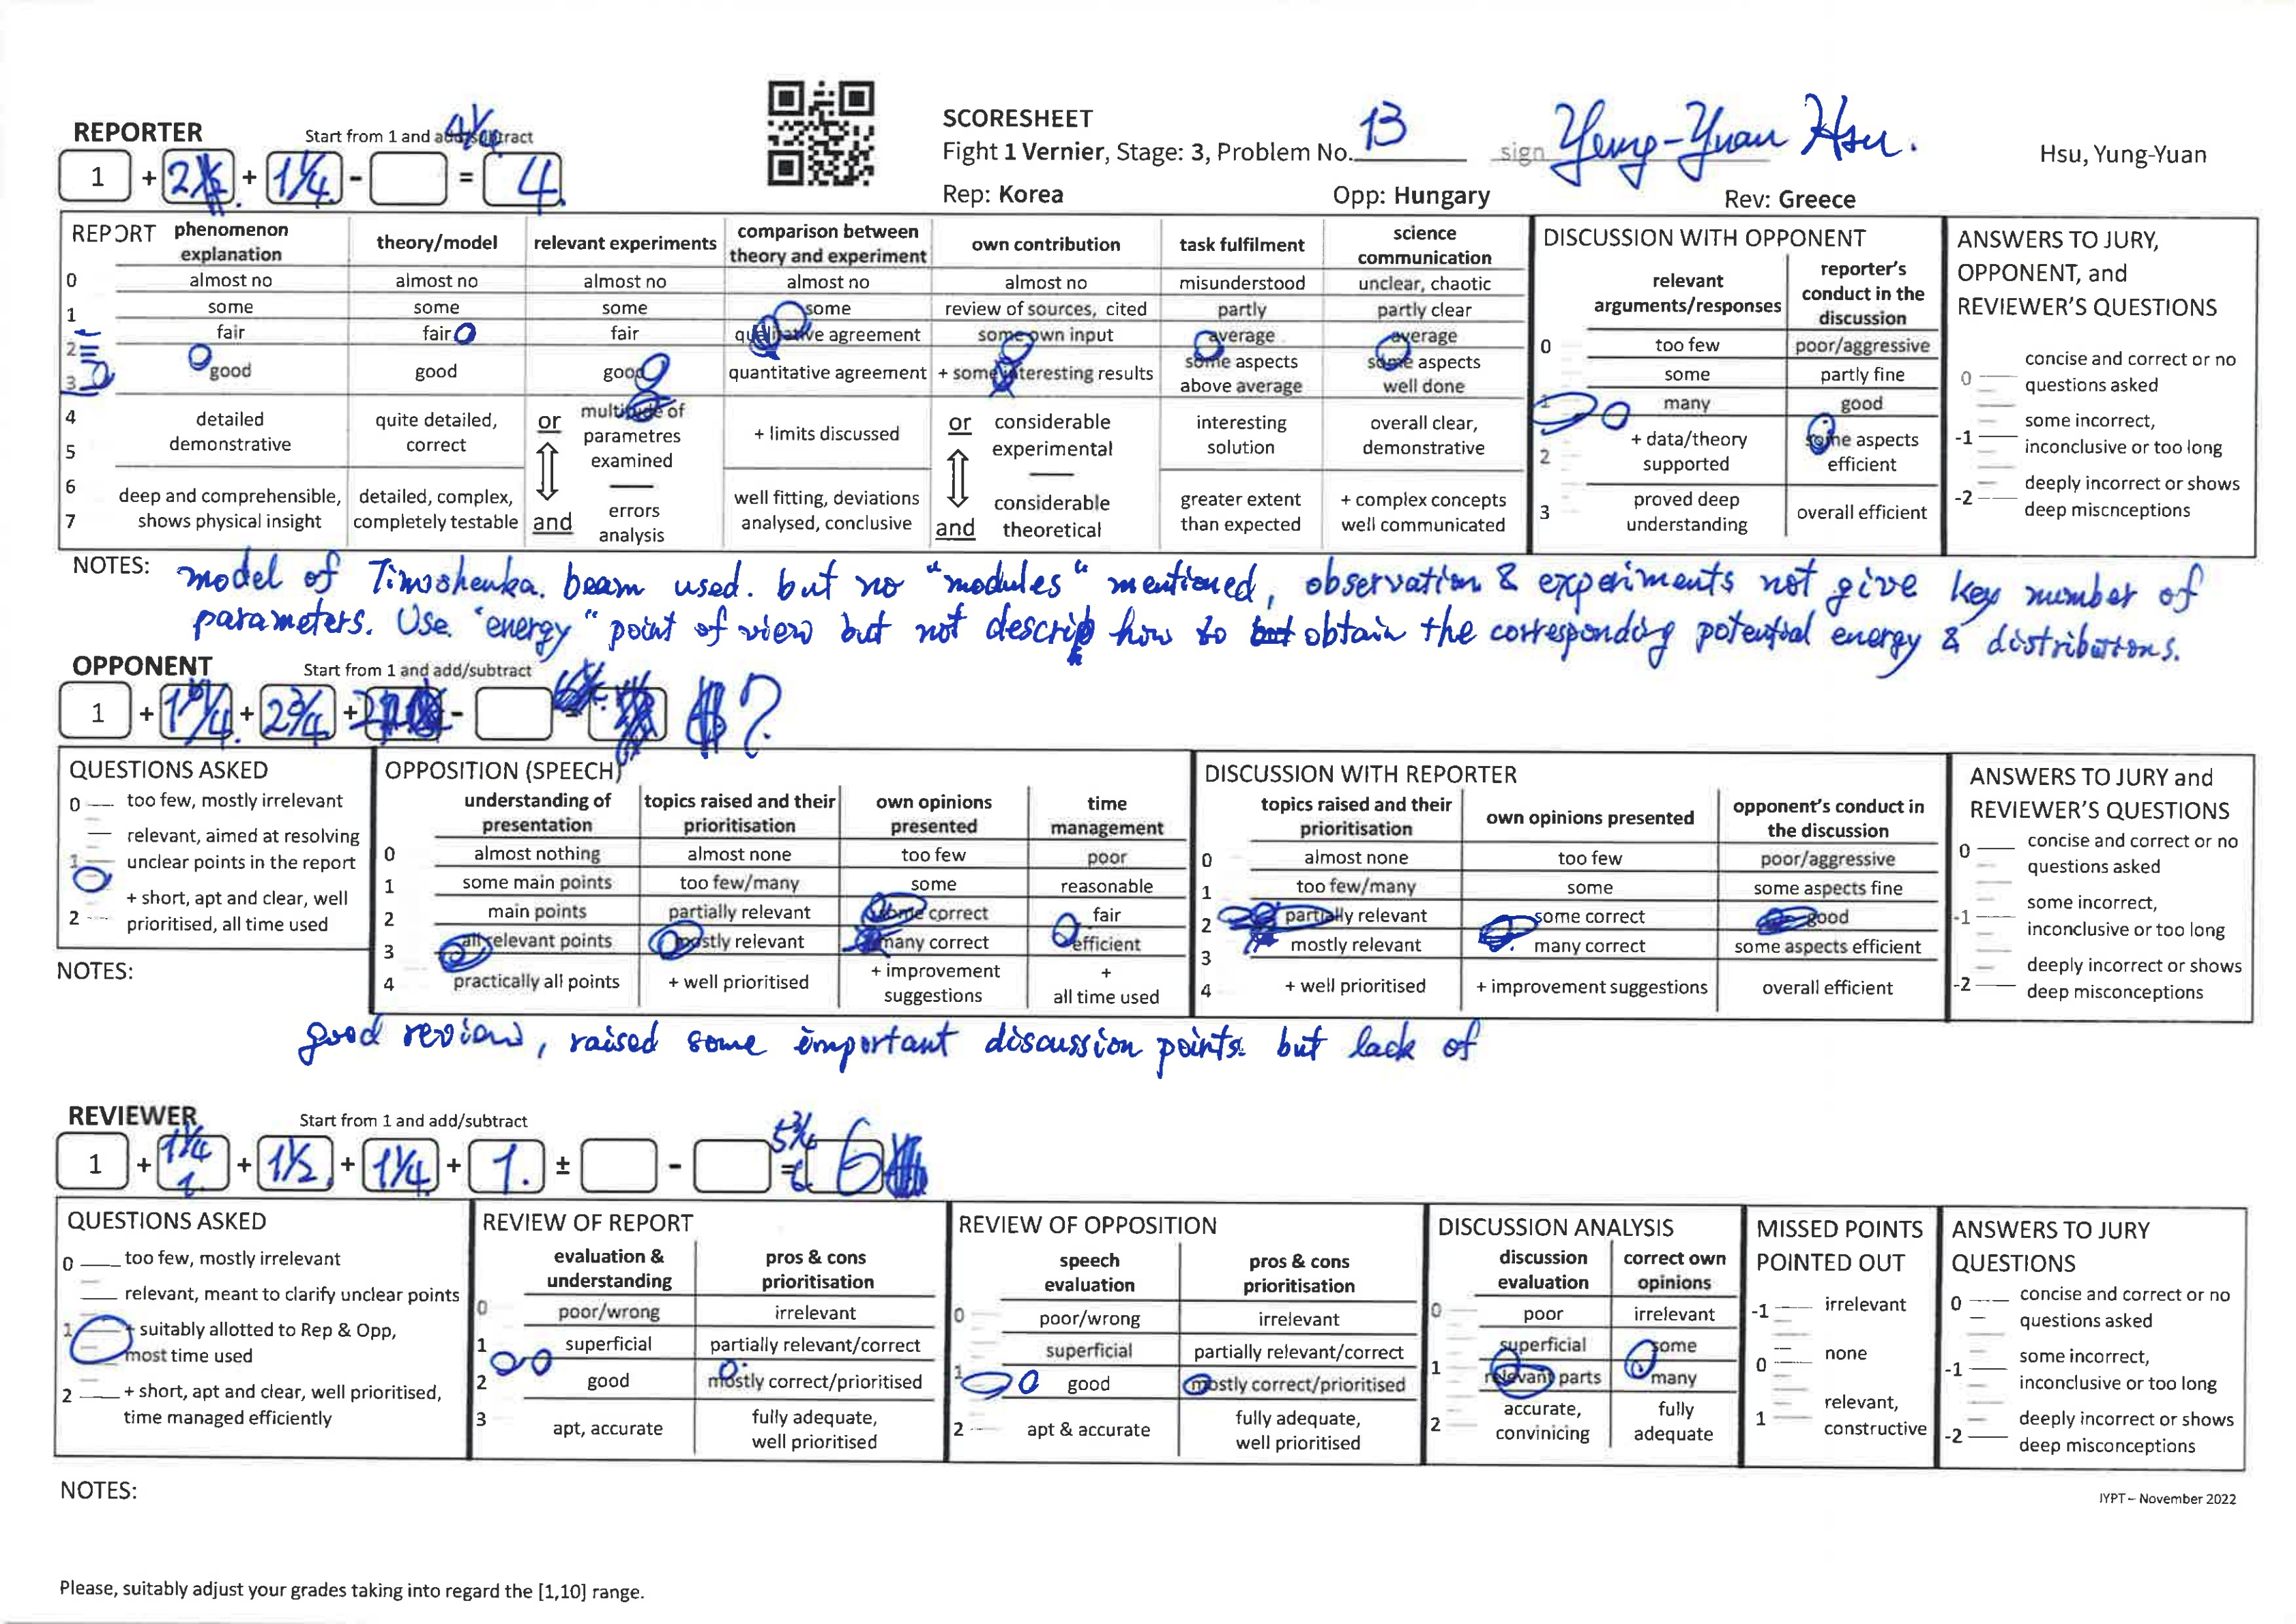 REPORTER Start from 1 and add/subtract 4 1/4
1 + 2 + 1 1/4 - = 4
SCORESHEET
Fight 1 Vernier, Stage: 3, Problem No. 13
sign Yung-Yuan Hsu.
Hsu, Yung-Yuan
Rep: Korea Opp: Hungary Rev: Greece
REPORT
phenomenon explanation
theory/model
relevant experiments
comparison between theory and experiment
own contribution
task fulfilment
science communication
0 almost no almost no almost no almost no almost no misunderstood unclear, chaotic
1 some some some some review of sources, cited partly partly clear
2 fair fair fair qualitative agreement some own input average average
3 good good good quantitative agreement + some interesting results some aspects above average some aspects well done
4 5 detailed demonstrative quite detailed, correct or multitude of parametres examined + limits discussed or considerable experimental interesting solution overall clear, demonstrative
6 7 deep and comprehensible, shows physical insight detailed, complex, completely testable and errors analysis well fitting, deviations analysed, conclusive and considerable theoretical greater extent than expected + complex concepts well communicated
DISCUSSION WITH OPPONENT
relevant arguments/responses
reporter's conduct in the discussion
0 too few poor/aggressive
some partly fine
1 many good
2 + data/theory supported some aspects efficient
3 proved deep understanding overall efficient
ANSWERS TO JURY, OPPONENT, and REVIEWER'S QUESTIONS
0 concise and correct or no questions asked
-1 some incorrect, inconclusive or too long
-2 deeply incorrect or shows deep miscnceptions
NOTES: model of Timoshenka. beam used. but no "modules" mentioned, observation & experiments not give key number of
parameters. Use "energy" point of view but not describ how to obtain the corresponding potential energy & distributions.
OPPONENT Start from 1 and add/subtract
1 + + 2 3/4 + - = ?
QUESTIONS ASKED
0 too few, mostly irrelevant
1 relevant, aimed at resolving unclear points in the report
2 + short, apt and clear, well prioritised, all time used
NOTES:
OPPOSITION (SPEECH)
understanding of presentation
topics raised and their prioritisation
own opinions presented
time management
0 almost nothing almost none too few poor
1 some main points too few/many some reasonable
2 main points partially relevant some correct fair
3 all relevant points mostly relevant many correct efficient
4 practically all points + well prioritised + improvement suggestions + all time used
DISCUSSION WITH REPORTER
topics raised and their prioritisation
own opinions presented
opponent's conduct in the discussion
0 almost none too few poor/aggressive
1 too few/many some some aspects fine
2 partially relevant some correct good
3 mostly relevant many correct some aspects efficient
4 + well prioritised + improvement suggestions overall efficient
ANSWERS TO JURY and REVIEWER'S QUESTIONS
0 concise and correct or no questions asked
-1 some incorrect, inconclusive or too long
-2 deeply incorrect or shows deep misconceptions
good review, raised some important discussion points. but lack of
REVIEWER Start from 1 and add/subtract
1 + 1 1/4 + 1 1/2 + 1 1/4 + 1. ± - 5 3/4 = 6
QUESTIONS ASKED
0 too few, mostly irrelevant
relevant, meant to clarify unclear points
1 + suitably allotted to Rep & Opp, most time used
2 + short, apt and clear, well prioritised, time managed efficiently
REVIEW OF REPORT
evaluation & understanding
pros & cons prioritisation
0 poor/wrong irrelevant
1 superficial partially relevant/correct
2 good mostly correct/prioritised
3 apt, accurate fully adequate, well prioritised
REVIEW OF OPPOSITION
speech evaluation
pros & cons prioritisation
0 poor/wrong irrelevant
superficial partially relevant/correct
1 good mostly correct/prioritised
2 apt & accurate fully adequate, well prioritised
DISCUSSION ANALYSIS
discussion evaluation
correct own opinions
0 poor irrelevant
superficial some
1 relevant parts many
2 accurate, convinicing fully adequate
MISSED POINTS POINTED OUT
-1 irrelevant
0 none
1 relevant, constructive
ANSWERS TO JURY QUESTIONS
0 concise and correct or no questions asked
-1 some incorrect, inconclusive or too long
-2 deeply incorrect or shows deep misconceptions
NOTES:
IYPT – November 2022
Please, suitably adjust your grades taking into regard the [1,10] range.